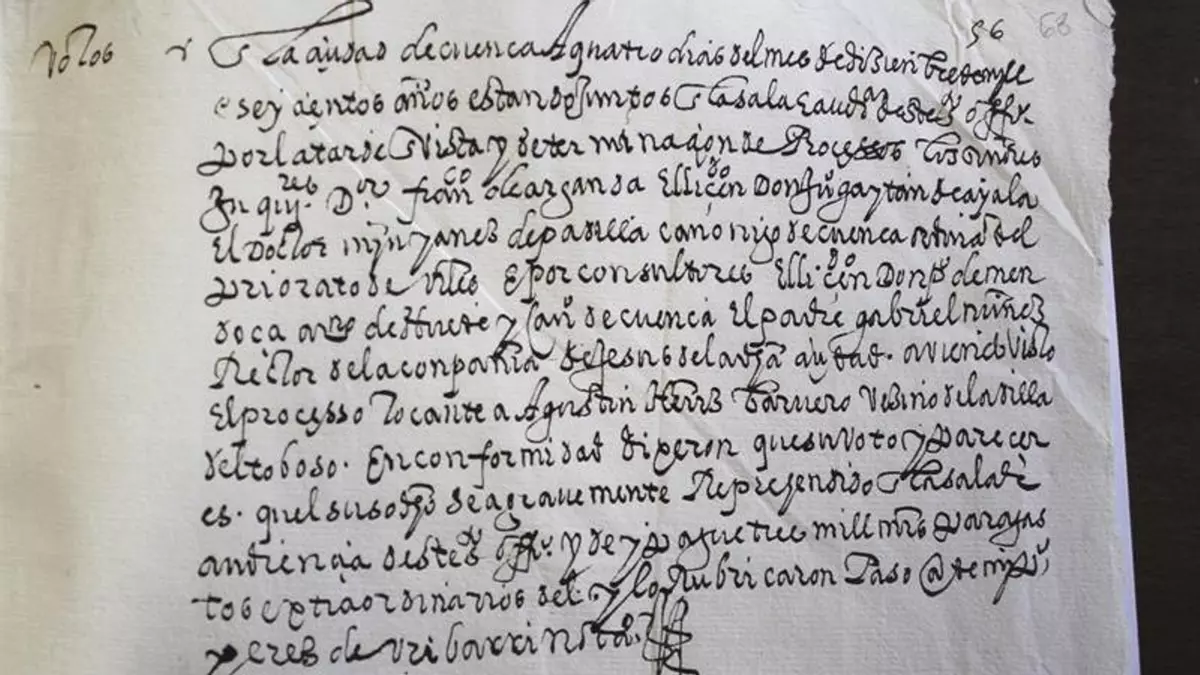 56 68
Votos En la ciudad de cuenca A quatro dias del mes de diziembre de mill
e seyscientos años estando juntos En la sala e audiª deste sto offº
por la tarde En vista y determinaçion de Processos los señores
Inquires Dor franco de arganda El licendo Don Juº gaytan de ayala
El Doctor yanes de padilla canonigo de cuenca ordinaº del
priorato de Ucles E por consultores El licendo Don pº de men
doça de Huete y canº de cuenca El padre gabriel nuñez
Rector de la conpañia de Jesus de la dha ciudad. aviendo visto
El processo tocante a Agustin Herrz barvero Vezino de la villa
del toboso. En conformidad dixeron que su voto y parecer
es. quel susodho sea gravemente Reprehendido En la sala de
audiencia deste sto offº. y pague tres mill mrs para gas
tos extraordinarios del. y lo Rubricaron Paso Ante mi
perez de Uribarri notº.